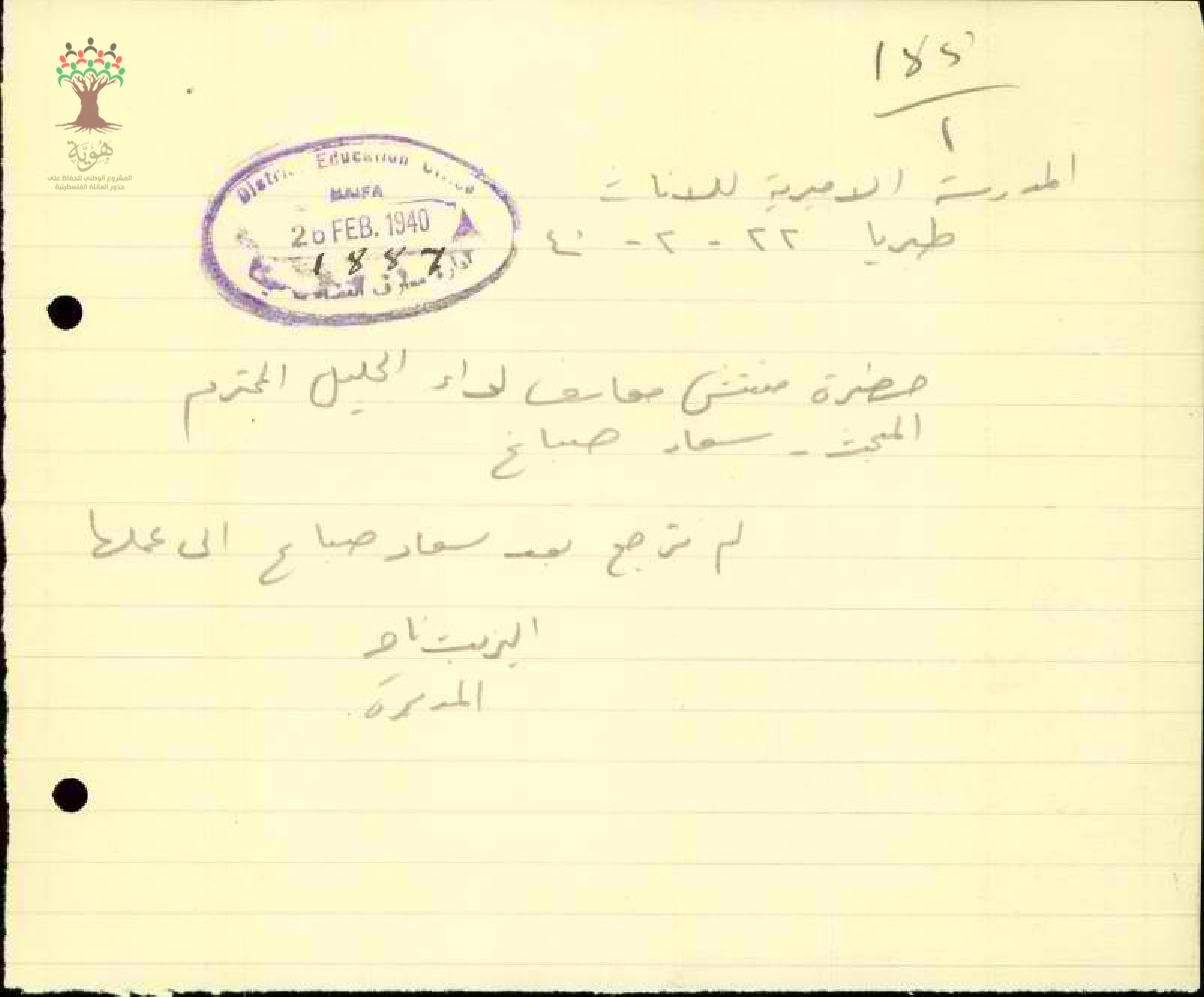 هُوِيَّة
المشروع الوطني للحفاظ على
جذور العائلة الفلسطينية
1
District Education Office
HAIFA
26 FEB. 1940
1887
ادارة معارف
المدرسة الاميرية للاناث
طبريا ٢٢ - ٢ - ٤٠
حضرة مفتش معارف لواء الجليل المحترم
المبحث - سعاد صباغ
لم ترجع بعد سعاد صباغ الى عملها
المديرة